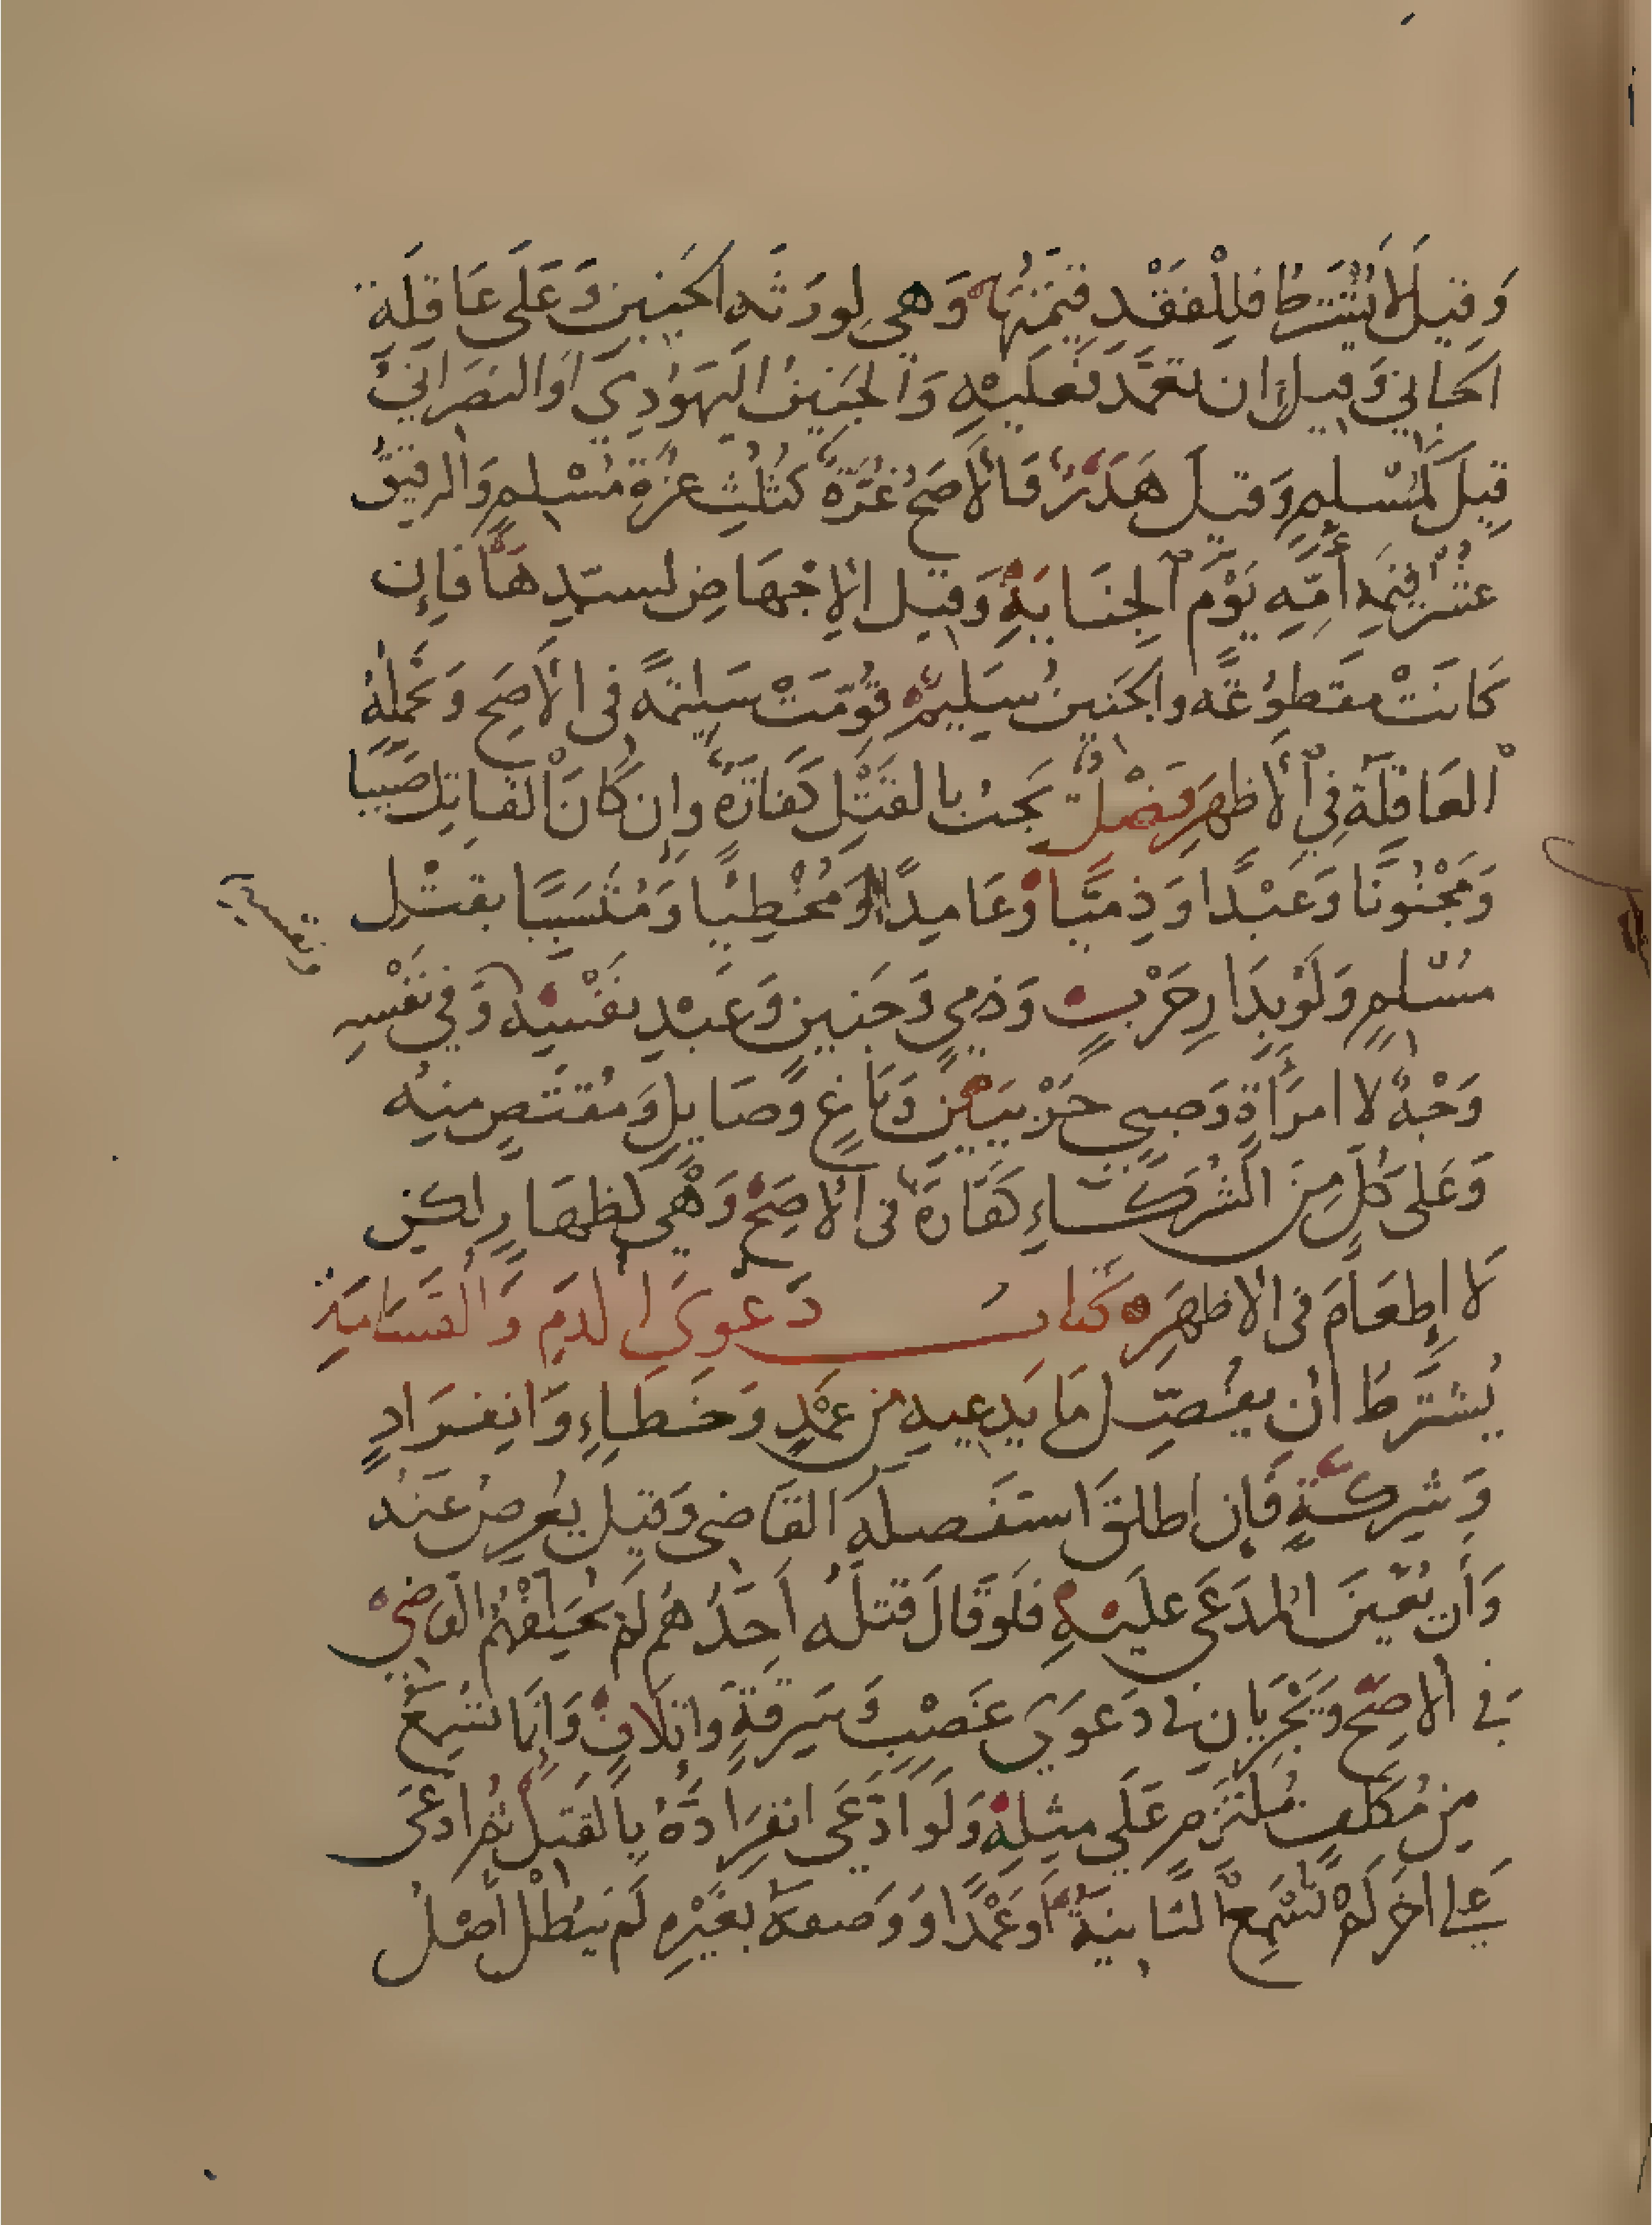 وَقِيلَ لَا يُشْتَرَطُ فَلِلْفَقْدِ قِيمَتُهَا وَهِيَ لِوَرَثَةِ الجَنِينِ وَعَلَى عَاقِلَةِ
الجَانِي وَقِيلَ إِن تَعَمَّدَ فَعَلَيْهِ وَالجَنِينُ اليَهُودِيّ أَوِ النَصْرَانِيُّ
قِيلَ كَمُسْلِمٍ وَقِيلَ هَدَرٌ وَالْأَصَحُّ غُرَّةٌ كَثُلُثِ غُرَّةِ مُسْلِمٍ وَالرَقِيقُ
عُشْرُ قِيمَةِ أُمِّهِ يَوْمَ الْجِنَايَةِ وَقِيلَ الإِجْهَاضِ لسيّدِهَا فَإِن
كَانَتْ مَقطُوعَةً وَالجَنِينُ سَلِيمٌ قُوِّمَتْ سَلِيمَةً فِى الأَصَحِّ وَتَحْمِلُهُ
الْعَاقِلَةُ فِي الْأَظهَرِ فَصْلٌ تَجِبُ بِالْقَتْلِ كَفَّارَةٌ وَإِن كَانَ الْقَاتِلُ صَبِيًّا
وَمَجْنُونًا وَعَبْدًا وَذِمِّيًّا وَعَامِدًا وَمُخْطِيًا وَمُتَسَبِّبًا بِقَتْلِ
مُسْلِمٍ وَلَوْ بِدَارِ حَرْبٍ وَذِمِّيٍّ وَجَنِينٍ وَعَبْدِ نَفْسِهِ وَفِي نَفْسِهِ
وَجْهٌ لَا امرَأَةٍ وَصَبِيٍّ حَرْبِيَّيْنِ وَبَاغٍ وَصَايِلٍ وَمُقتَصٍّ مِنْهُ
وَعَلَى كُلٍّ مِنَ الشُرَكَاءِ كَفَّارَةٌ فِى الأَصَحِّ وَهِيَ كَظِهَارٍ لكِن
لَا إِطعَامَ فِى الأَظهَرِ كتاب دَعْوَى الدَمِ وَالقَسَامَةِ
يُشْتَرَطُ أَن يُفَصِّلَ مَا يَدعِيهِ مِن عَمْدٍ وَخَطَاءٍ وَانفِرَادٍ
وَشِركَةٍ فَإِن أَطلَقَ استَفصَلَهُ القَاضِى وَقِيلَ يُعرِضُ عَنهُ
وَأَن يُعَيِّنَ المدَعَى عَلَيْهِ فَلَو قَالَ قَتَلَهُ أَحَدُهُم لَمْ يُحَلِّفْهُمُ القَاضِي
فِي الأَصَحِّ وَيَجْرِيَانِ فِى دَعوَى غَصْبٍ وَسَرِقَةٍ وَإِتلَافٍ وَإِنَّمَا تُسْمَعُ
مِن مُكَلَّفٍ مُلتَزِمٍ عَلَى مِثلِهِ وَلَو ادَّعَى انفِرَادَهُ بِالقَتلِ ثُمَّ ادعَى
عَلَى اخَرَ لَمْ تُسْمَعِ الثَّانِيَةُ أَو عَمْدًا وَوَصَفَهُ بِغَيْرِهِ لَمْ يَبْطُلْ أَصْلُ